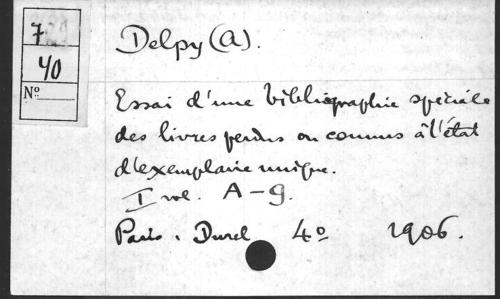 7
40
Nº
Delpy (A).
Essai d'une bibliographie spéciale
des livres perdus ou connus à l'état
d'exemplaire unique.
I vol. A-g.
Paris. Durel 4º 1906.